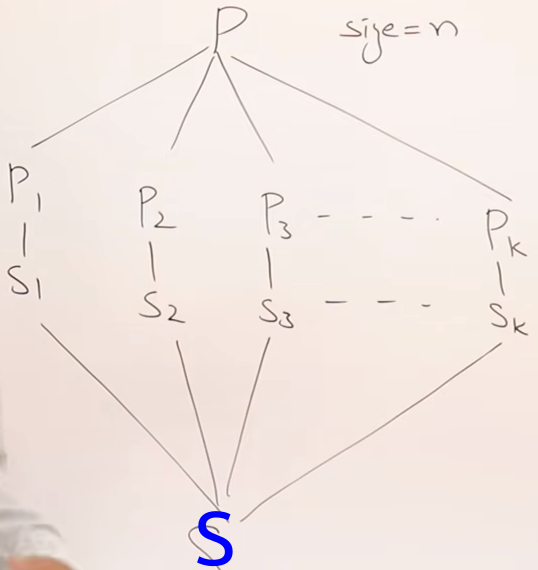 P size = n
P1 P2 P3 - - - - Pk
S1 S2 S3 - - - Sk
S